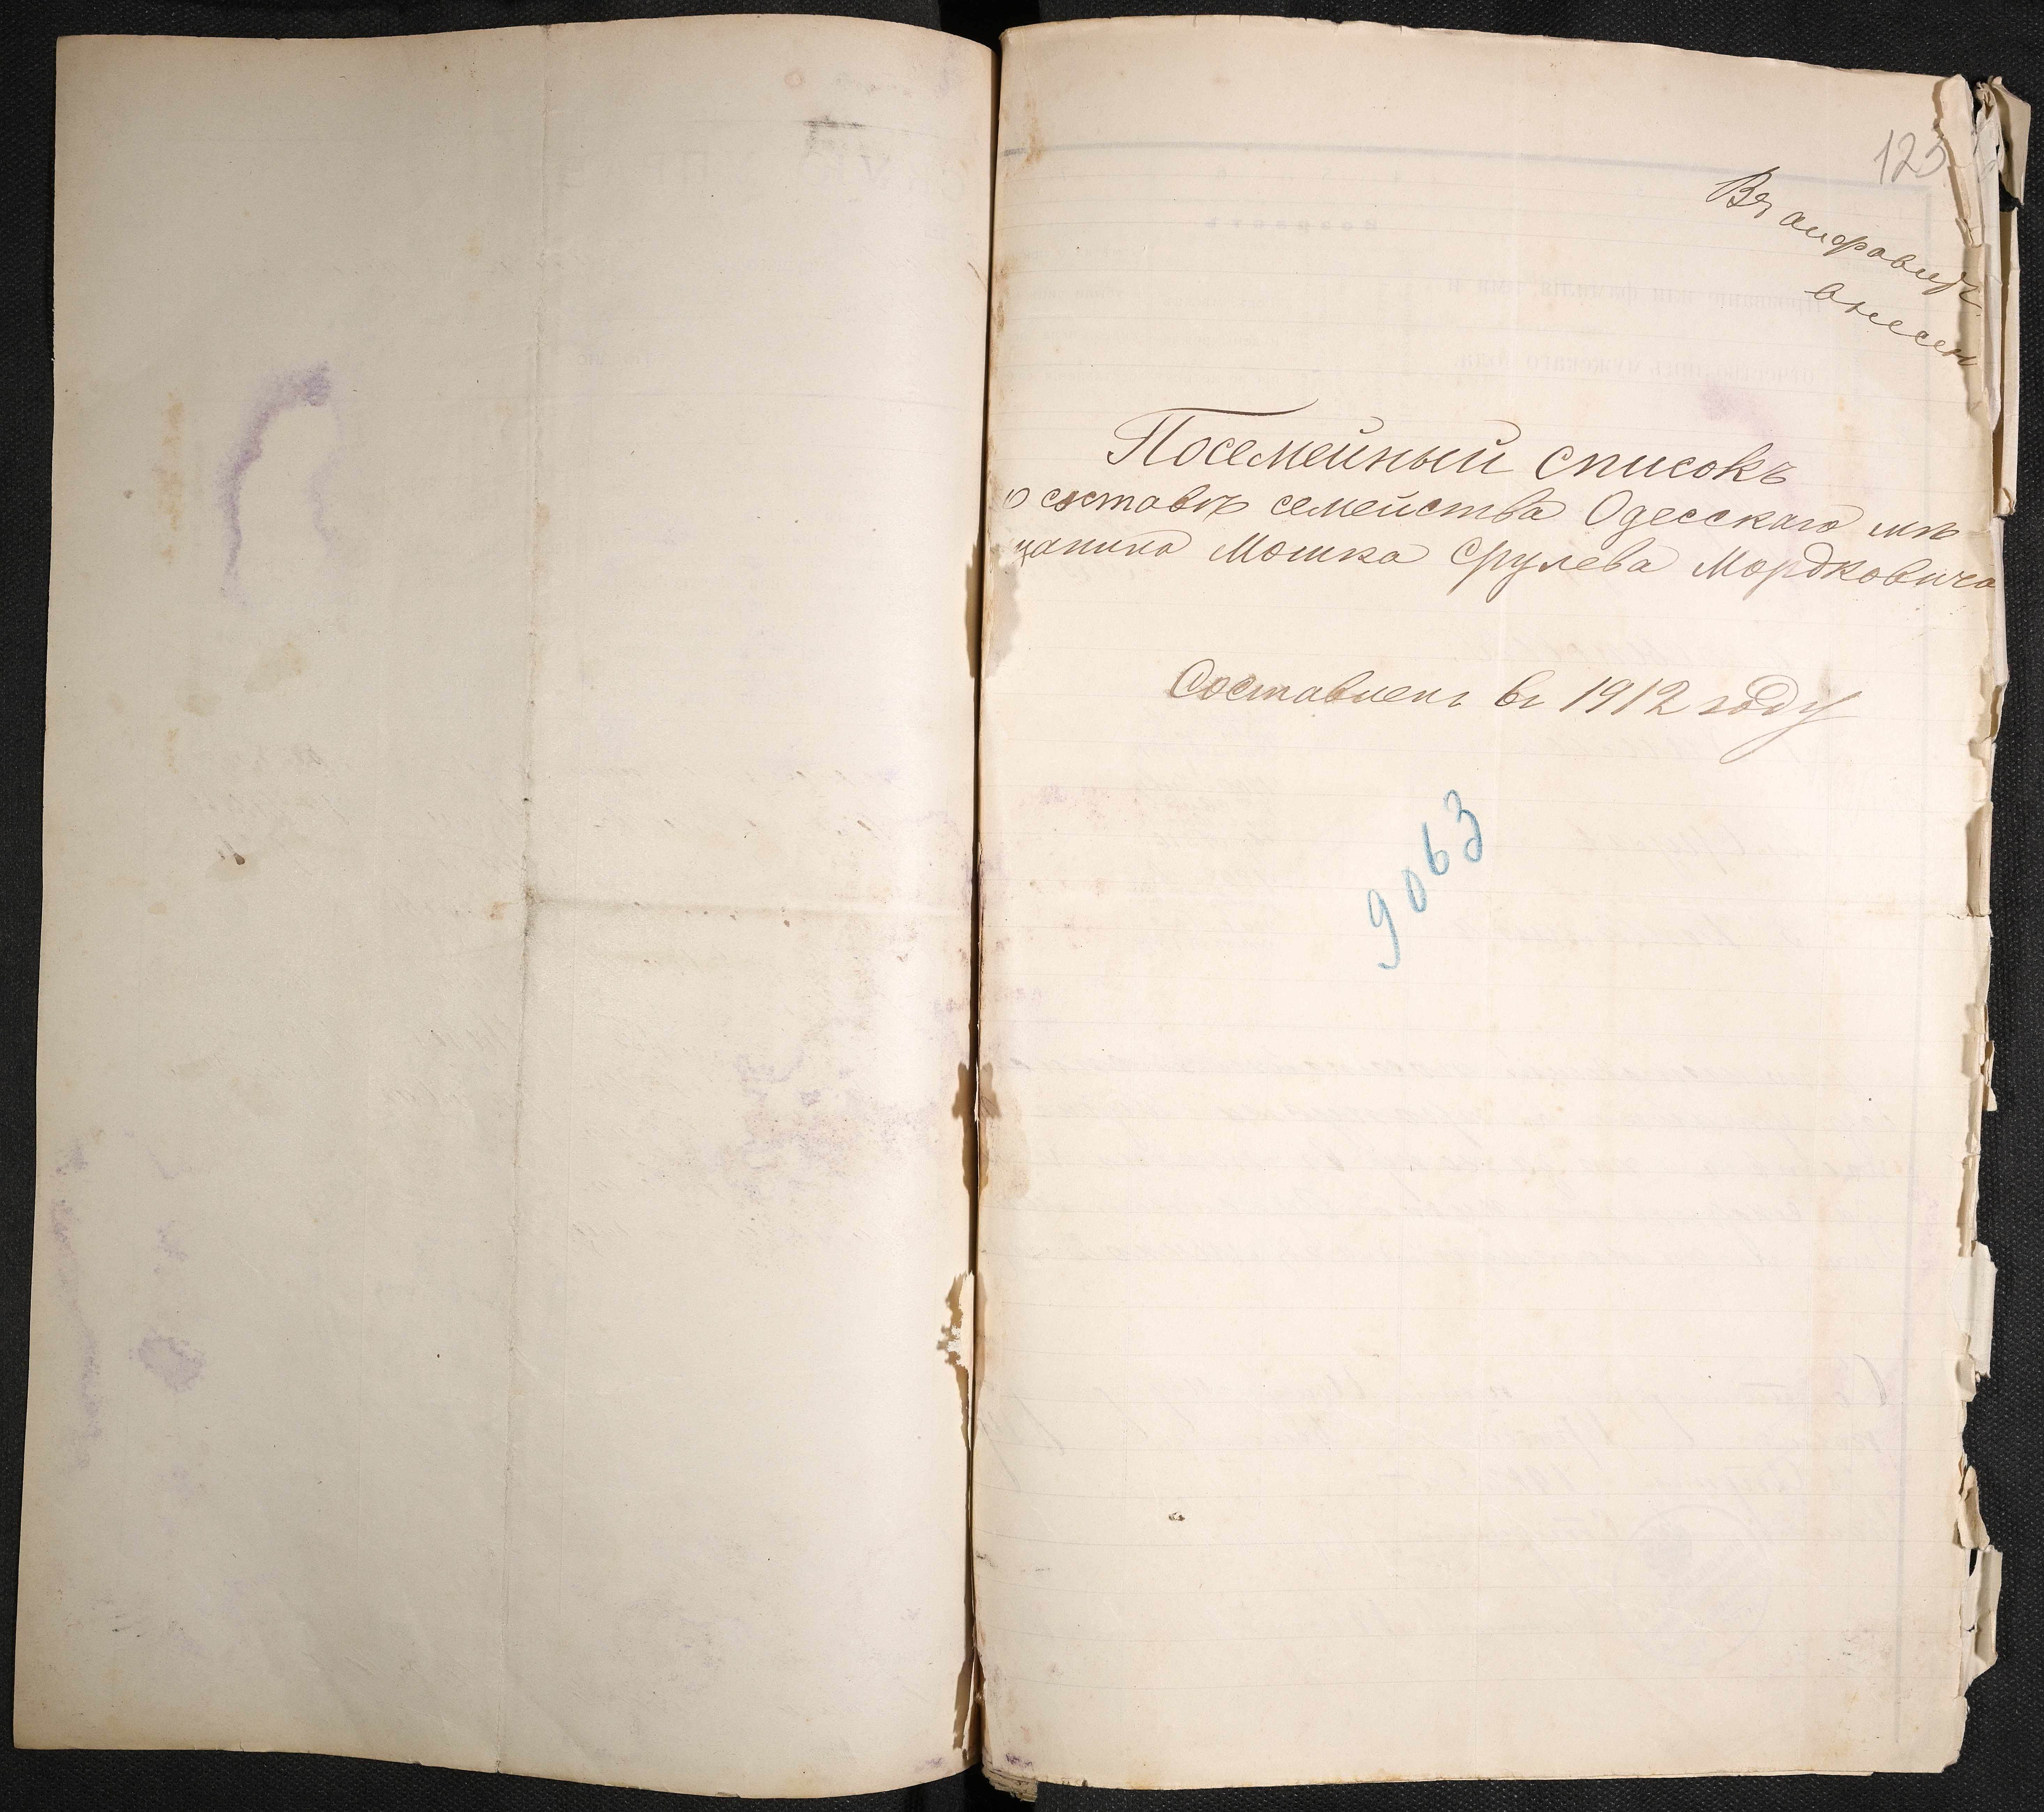 123
Въ алфавитъ
внесен
Посемейный списокъ
о составѣ семейства Одесскаго мѣ
щанина Мошка Срулева Мордковича
Составленъ въ 1912 году
9063